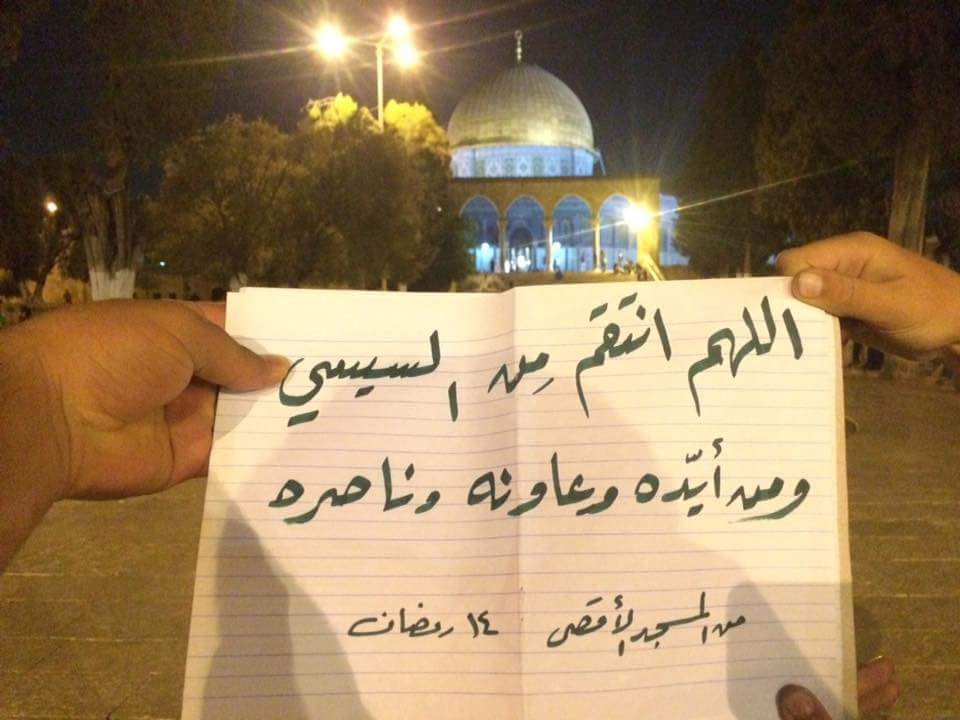 اللهم انتقم مِن السيسي
ومن أيّده وعاونه وناصره
من المسجد الأقصى ١٤ رمضان